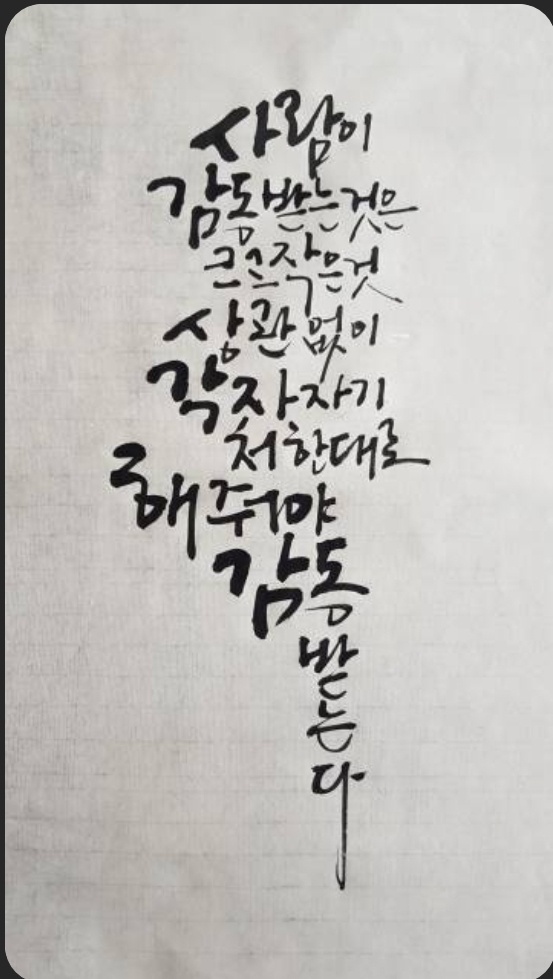 사람이
감동받는것은
크고작은것
상관없이
각자자기
처한대로
해줘야
감동
받
는
다